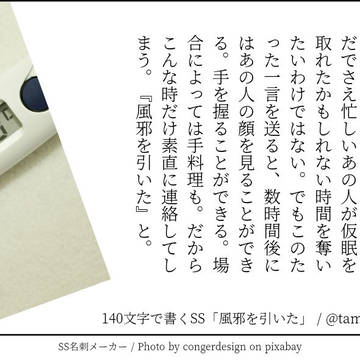 だでさえ忙しいあの人が仮眠を
取れたかもしれない時間を奪い
たいわけではない。でもこのた
った一言を送ると、数時間後に
はあの人の顔を見ることができ
る。手を握ることができる。場
合によっては手料理も。だから
こんな時だけ素直に連絡してし
まう。『風邪を引いた』と。
140文字で書くSS「風邪を引いた」 / @tam
SS名刺メーカー / Photo by congerdesign on pixabay